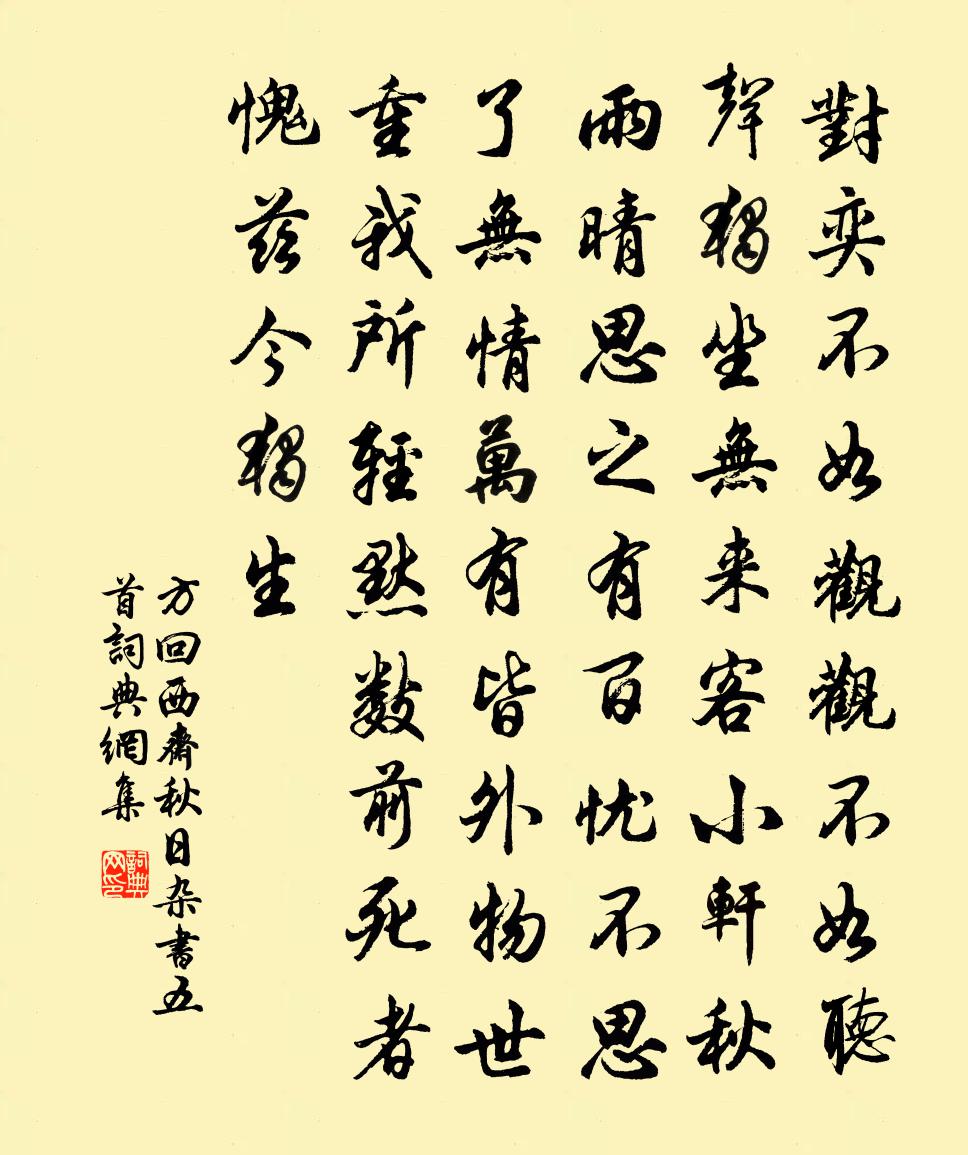 對奕不如觀觀不如聽
聲獨坐無来客小軒秋
雨晴思之有百忧不思
了無情萬有皆外物世
重我所輕默数前死者
愧兹今獨生
方回西齋秋日杂書五
首詞典網集
詞典网印